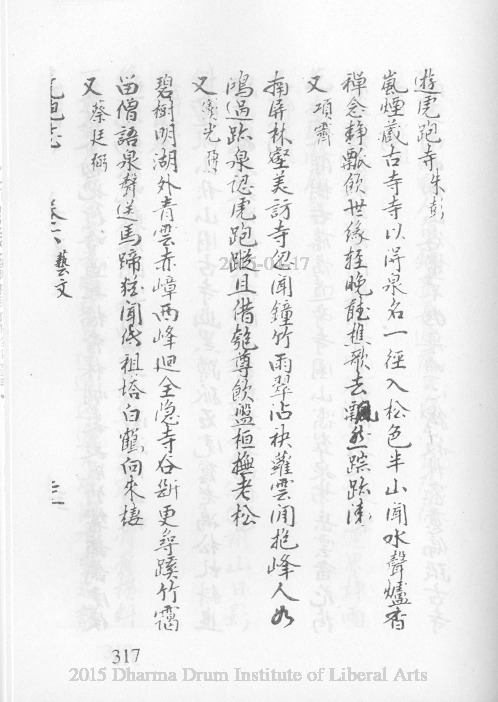 遊虎跑寺 朱彭
嵐煙藏古寺寺以得泉名一徑入松色半山聞水聲爐香
禪念靜瓢飲世緣輕晚龍樵歌去飄然踪跡清
又 項霽
南屏林壑美訪寺忽聞鐘竹雨翠沾袂蘿雲閒抱峰人如
鴻過跡泉認虎跑蹤且借匏尊飲盤桓撫老松
又
碧樹明湖外青雲赤嶂西峰迴全隱寺谷斷更尋蹊竹靄
留僧語泉聲送馬蹄猶聞依祖塔白鶴向來棲
又 蔡廷弼
虎跑志 卷六 藝文 三一
317
2015-04-17
2015 Dharma Drum Institute of Liberal Arts